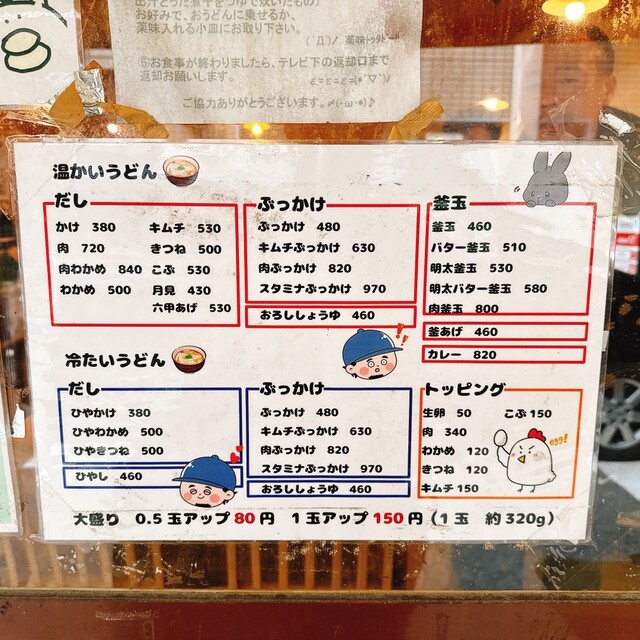 出汁とった煮干をつゆで炊いたもの)
お好みで、おうどんに乗せるか、
薬味入れる小皿にお取り下さい。
⑥お食事が終わりましたら、テレビ下の返却口まで
返却お願いします。
ご協力ありがとうございます。
温かいうどん
だし
かけ 380
キムチ 530
肉 720
きつね 500
肉わかめ 840
こぶ 530
わかめ 500
月見 430
六甲あげ 530
ぶっかけ
ぶっかけ 480
キムチぶっかけ 630
肉ぶっかけ 820
スタミナぶっかけ 970
おろししょうゆ 460
釜玉
釜玉 460
バター釜玉 510
明太釜玉 530
明太バター釜玉 580
肉釜玉 800
釜あげ 460
カレー 820
!!
冷たいうどん
だし
ひやかけ 380
ひやわかめ 500
ひやきつね 500
ひやし 460
ぶっかけ
ぶっかけ 480
キムチぶっかけ 630
肉ぶっかけ 820
スタミナぶっかけ 970
おろししょうゆ 460
トッピング
生卵 50
こぶ 150
肉 340
わかめ 120
きつね 120
キムチ 150
egg!
大盛り 0.5玉アップ80円 1玉アップ150円(1玉 約320g)